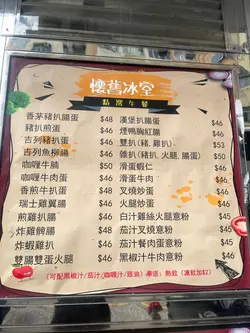 懷舊冰室
精選午餐
香茅豬扒腸蛋 $48
豬扒煎蛋 $46
吉列豬扒蛋 $46
吉列魚柳腸 $46
咖喱牛腩 $50
咖喱牛肉蛋 $46
香煎牛扒蛋 $46
瑞士雞翼腸 $46
煎雞扒腸 $46
炸雞髀腸 $46
炸蝦雞扒 $46
雙腸雙蛋火腿 $46
漢堡扒腸蛋 $46
煙鴨胸紅腸 $46
雙扒（豬,雞扒） $53
雜扒（豬扒,火腿,腸蛋） $50
滑蛋蝦仁 $46
滑蛋牛肉 $46
叉燒炒蛋 $46
火腿炒蛋 $46
白汁雞絲火腿意粉 $45
茄汁叉燒意粉 $45
茄汁餐肉蛋意粉 $45
黑椒汁牛肉意粉 $46
（可配黑椒汁/茄汁/咖喱汁/豉油）奉送：熱飲（凍飲加$2）